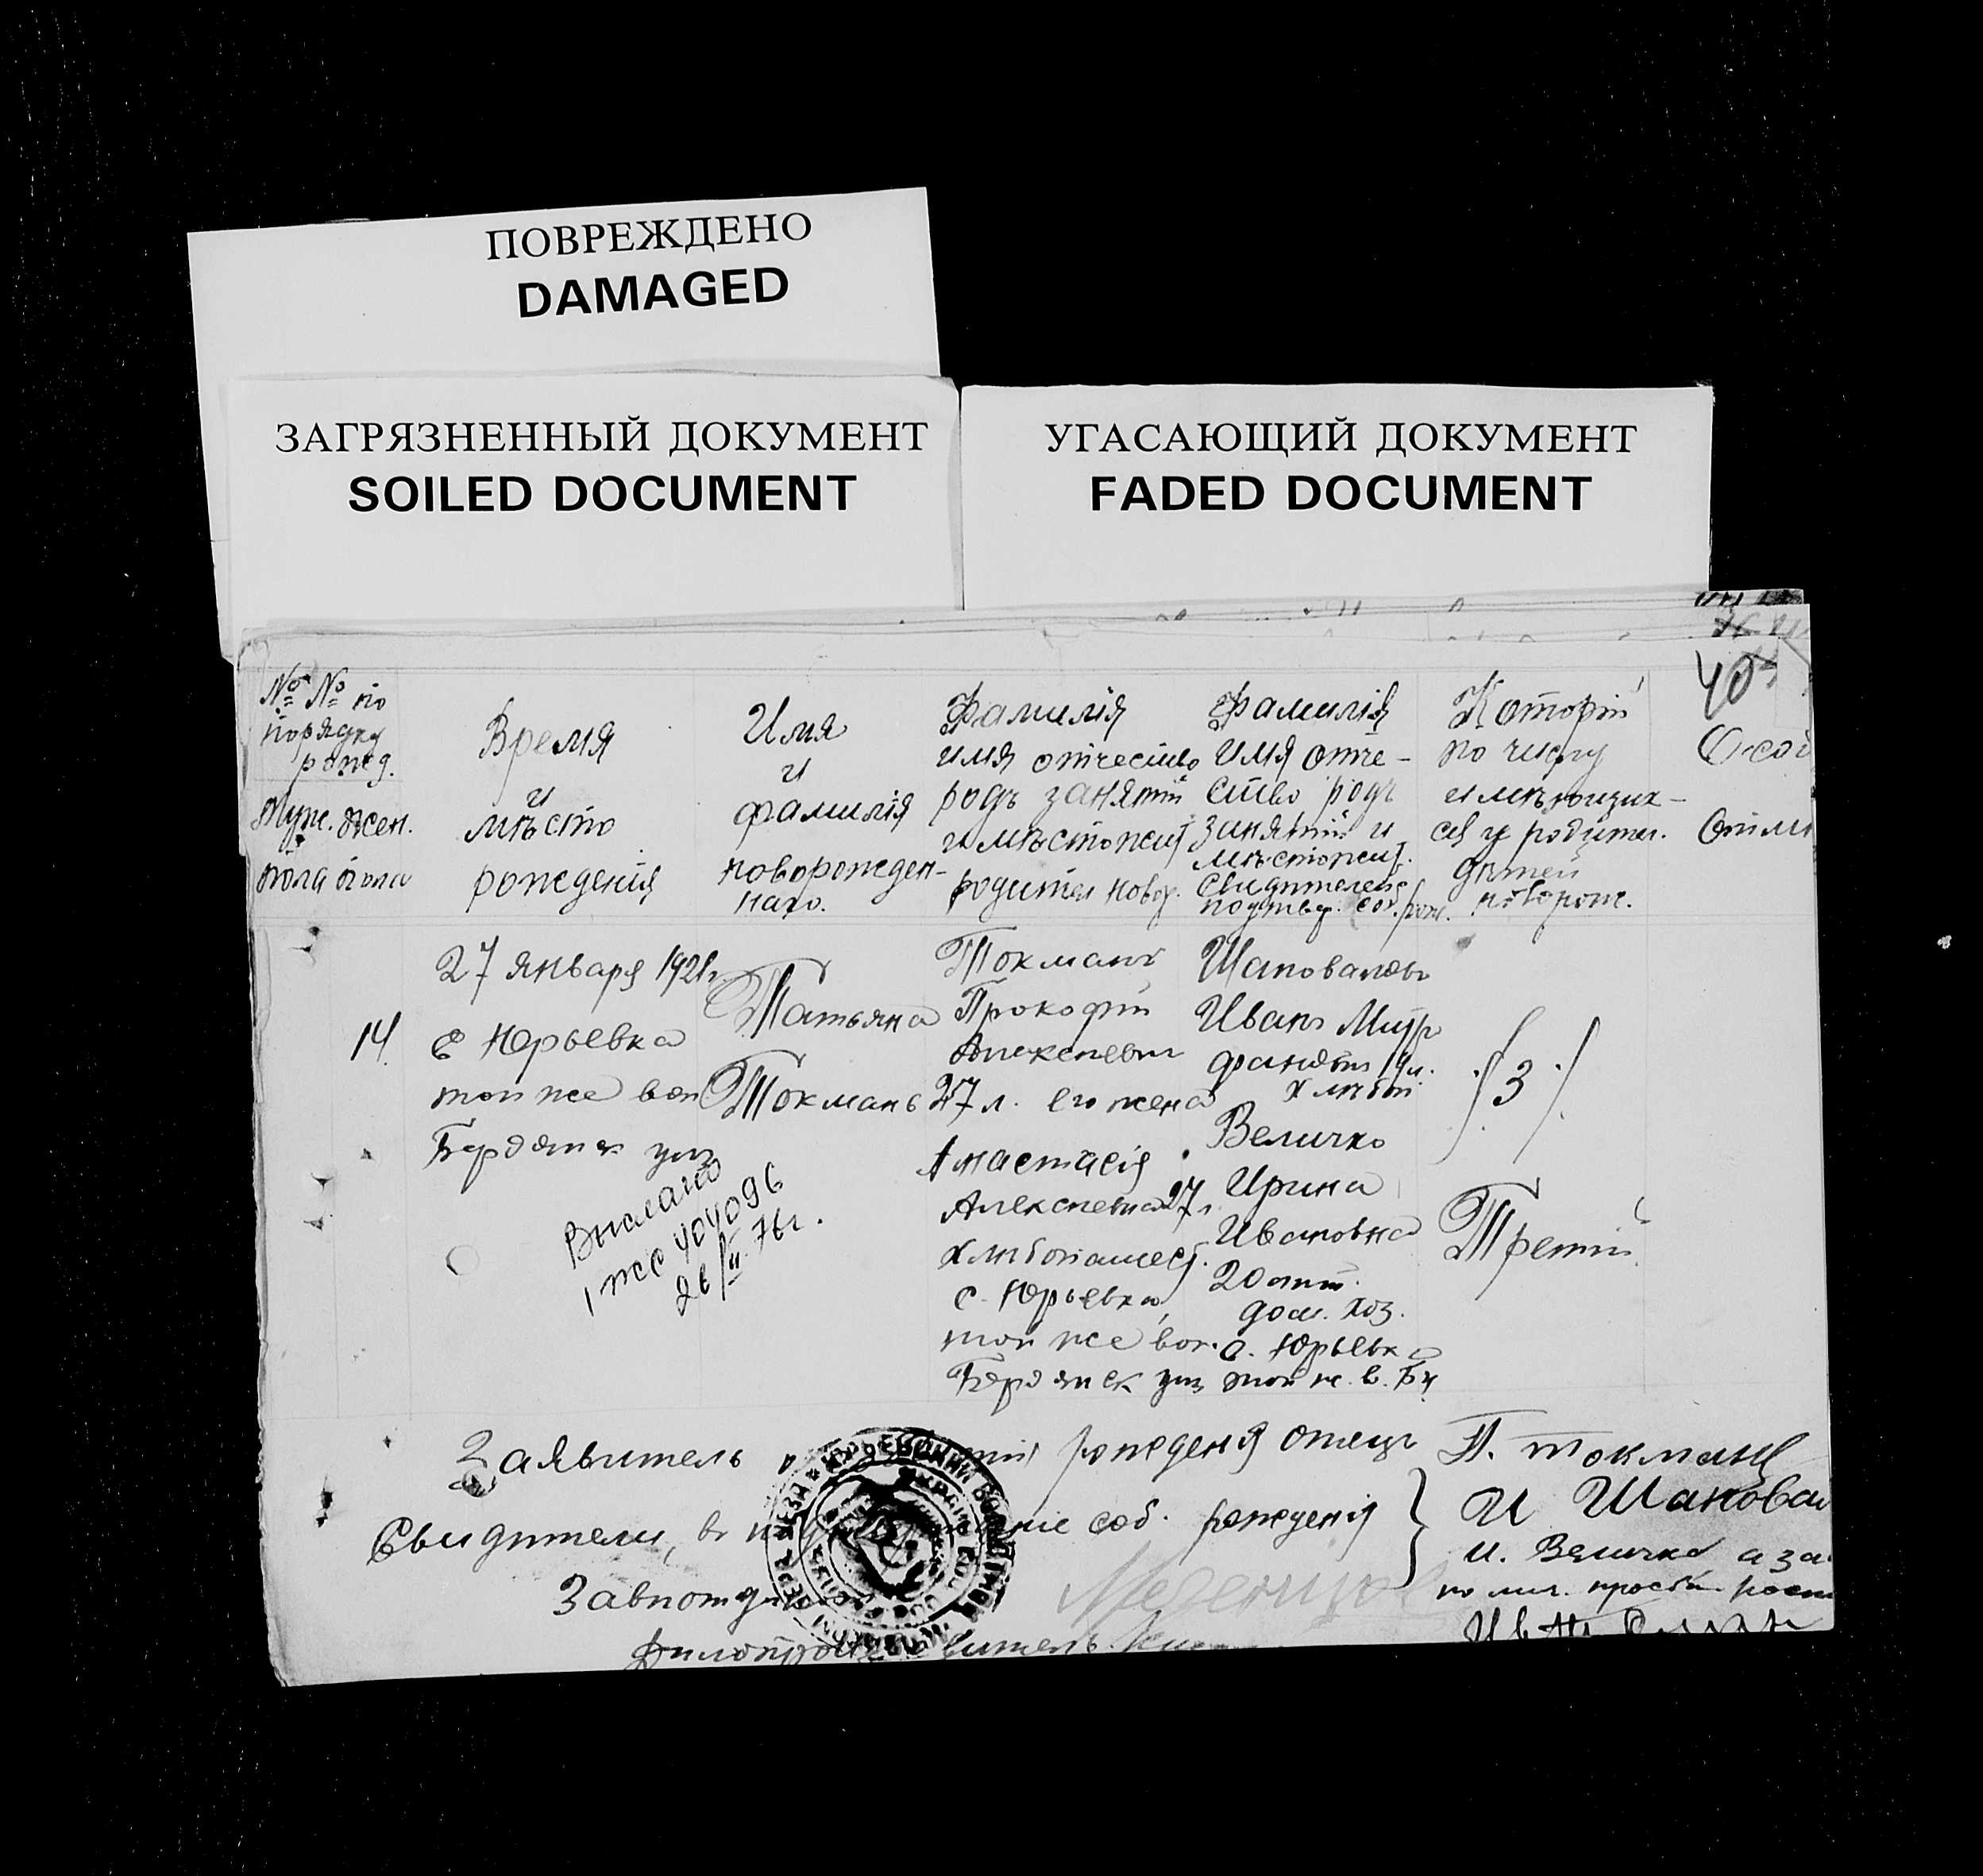 ПОВРЕЖДЕНО
DAMAGED
ЗАГРЯЗНЕННЫЙ ДОКУМЕНТ
SOILED DOCUMENT
УГАСАЮЩИЙ ДОКУМЕНТ
FADED DOCUMENT
40
№ № по
порядку
рожд.
Муж. Жен.
пола пола
Время
и
мѣсто
рожденія
Имя
и
фамилія
новорожден-
наго.
Фамилія
имя отчество
родъ занятій
и мѣстожит
родител новор.
Фамилія
имя отче-
ство родъ
занятій и
мѣстожит.
свидителей
подтвер. соб. рож.
Которій
по числу
имѣющих-
ся у родител.
дѣтей
новорож.
Особ
Отм
14
27 Января 1921 г.
с Юрьевка
той же вол
Бердянск уѣз
Татьяна
Токмань
Токмань
Прокофій
Алексѣевич
27 л. его жена
Анастасія
Алексѣевна 27 л
хлѣбопашест.
с. Юрьевка,
той же вол.
Бердянск уѣз
Шаповаловъ
Иванъ Митр
хлѣбоп
Величко
Ирина
Ивановна
20 лѣт.
дом. хоз.
с. Юрьевка
той ж. в. Б у
/3/
Третій
Выслано
I ЖС 404096
26/II 76 г.
Заявитель о рожденія отець
П. Токмань
Свидители, в соб. рожденія
И Шаповал
И. Величко а за
по лич. просьбѣ